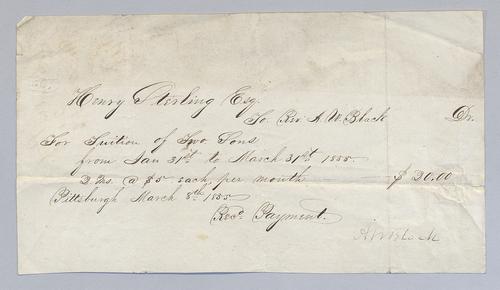 Henry Sterling Esq.
To Rev. A. W. Black Dr.
For Tuition of Two Sons
from Jan 31st to March 31st 1855
2 Ms. @ $5 each per month $20.00
Pittsburgh March 8th 1855
Recd. Payment.
A W Black